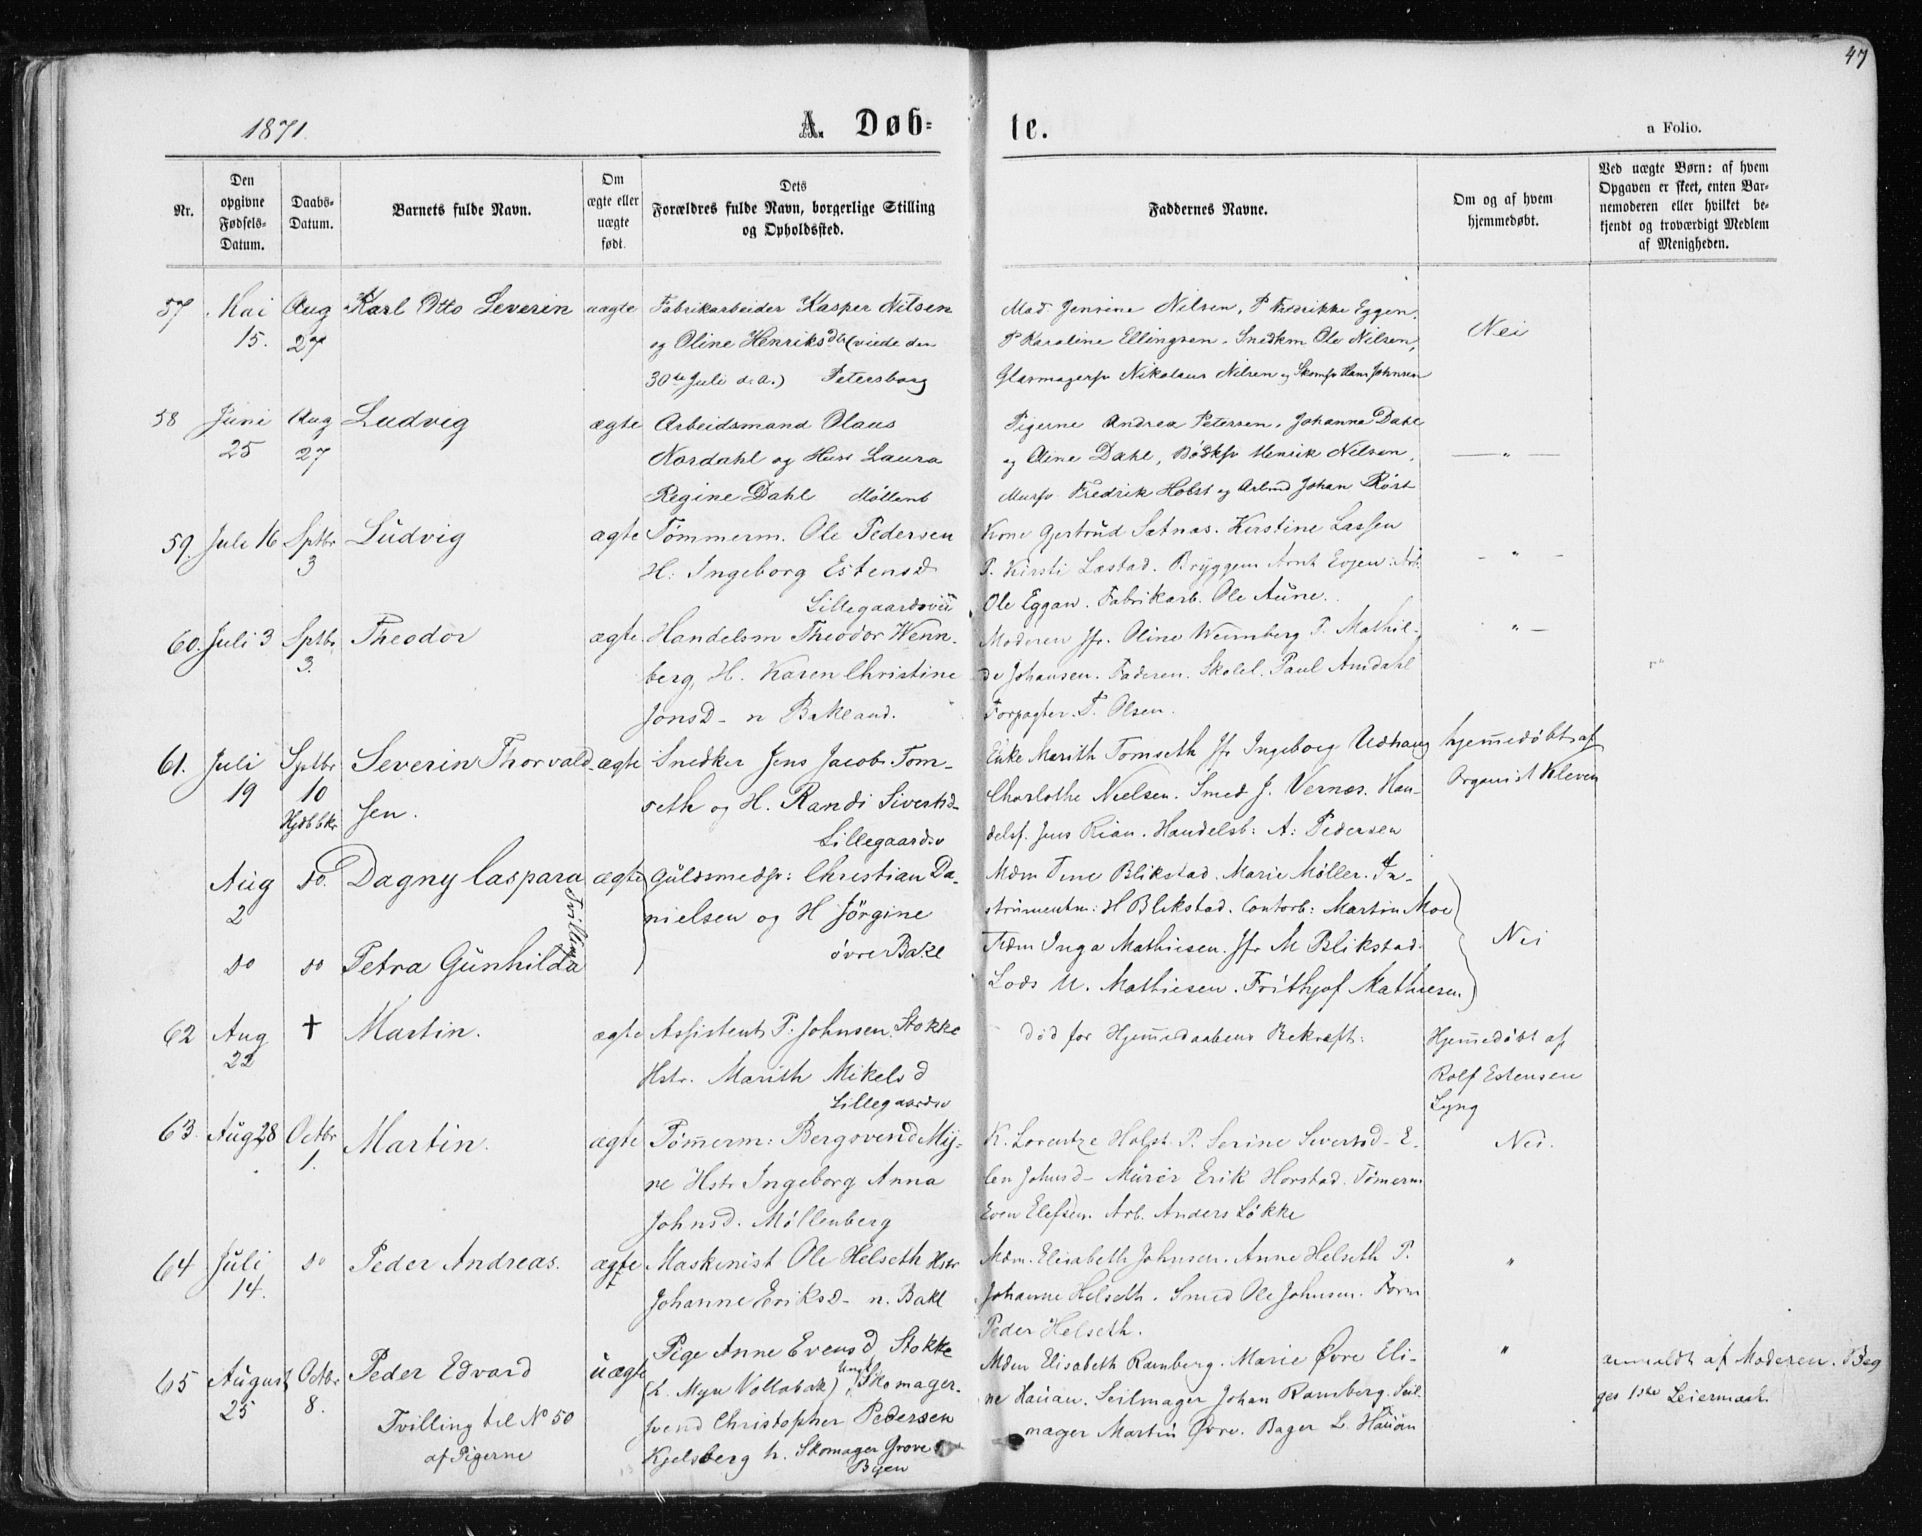 47
1871.
A. Døb-
te.
a Folio.
Nr.
Den opgivne Fødsels-Datum.
Daabs-Datum.
Barnets fulde Navn.
Om ægte eller uægte født.
Dets Forældres fulde Navn, borgerlige Stilling og Opholdssted.
Faddernes Navne.
Om og af hvem hjemmedøbt.
Ved uægte Børn: af hvem Opgaven er skeet, enten Barnemoderen eller hvilket bekjendt og troværdigt Medlem af Menigheden.
57 Mai 15. Aug 27 Karl Otto Severin uægte
Fabrikarbeider Kasper Nilsen
og Oline Henriksdtr (viede den
30te Juli d.a.) Petersborg
Mad Jensine Nilsen, P Fredrikke Eggen.
P Karoline Ellingsen. Snedkm Ole Nilsen,
Glasmagersv Nikolaus Nilsen og Skomsv Hans Johnsen
Nei
58 Juni 25 Aug 27 Ludvig ægte
Arbeidsmand Olaus
Nordahl og Hust Laura
Regine Dahl Møllenb
Pigerne Andrea Petersen, Johanna Dahl
og Oline Dahl, Bødksv Henrik Nilsen,
Mursv. Fredrik Holst og Arbmd Johan Røst
— " —
59. Juli 16 Sptbr 3 Ludvig ægte
Tømmerm. Ole Pedersen
H: Ingeborg Estensd
Lillegaardsvei
Kone Gjertrud Satnas. Kirstine Lassen
P. Kirsti Lostad. Bryggem Arnt Evjen. Arb.
Ole Eggan. Fabrikarb. Ole Aune.
- " -
60. Juli 3 Sptbr 3. Theodor ægte
Handelsm Theodor Wenn-
berg, H. Karen Christine
Jonsd- n Bakland.
Moderen Jfr. Oline Wennberg P. Mathil-
de Johansen. Faderen. Skolel. Paul Amdahl
Forpagter. T. Olsen.
" -
61. Juli 19 Sptbr 10 Hjdbbkr Severin Thorvald- ægte
sen.
Snedker Jens Jacobs Tom-
seth og H. Randi Sivertsd-
Lillegaardsv
Enke Marith Tomseth Jfr Ingeborg Udhaug
Charlothe Nielsen. Smed J. Vernes. Han-
delsf. Jens Rian. Handelsb: A: Pedersen
hjemedøbt af
Organist Kleven
Aug 2 do. Dagny Caspara ægte
Tvilling
do do Petra Gunhilda
Guldsmedsv: Christian Da-
nielsen og H Jørgine
øvre Bakl
Mdm Tine Blikstad. Marie Møller. In-
strumentm: H Blikstad. Contorb: Martin Moe
Mdm Inga Mathiesen. Jfr M Blikstad.
Lods M. Mathiesen. Frithjof Mathiesen
Nei
62 Aug 22 † Martin. ægte
Assistent P. Johnsen Stokke
Hstr. Marith Mikelsd
Lillegaardsv
død før Hjemmedaabens Bekræft:
Hjemedøbt af
Rolf Estensen
Lyng
63. Aug 28 Octbr 1. Martin. ægte
Tømerm: Bergsvend My-
re Hstr Ingeborg Anna
Johnsd. Møllenberg
K. Lorentze Holst P. Serine Sivertsd- E-
len Johnsd- Murer Erik Horstad. Tømerm
Even Elefsen. Arb. Anders Løkke
Nei.
64 Juli 14. do Peder Andreas. ægte
Maskinist Ole Helseth Hstr
Johanne Eriksd- n. Bakl
Mdm. Elisabeth Johnsen. Anne Helseth P.
Johanne Helseth. Smed Ole Johnsen. Form
Peder Helseth.
"
65 August 25 Octbr 8. Peder Edvard uægte
Tvilling til No 50
af Pigerne
Pige Anne Evensd Stokke
(L. Myr Vollabak) Ungk. Skomager-
svend Christopher Pedersen
Kjelsberg h. Skomager Grove
Byen
Mdm Elisabeth Ramberg. Marie Øvre Eli-
ne Hauan. Seilmager Johan Ramberg. Seil-
mager Martin Øvre. Bager L. Hauan
"
anmeldt af Moderen. Beg
ges 1ste Leiermaal.